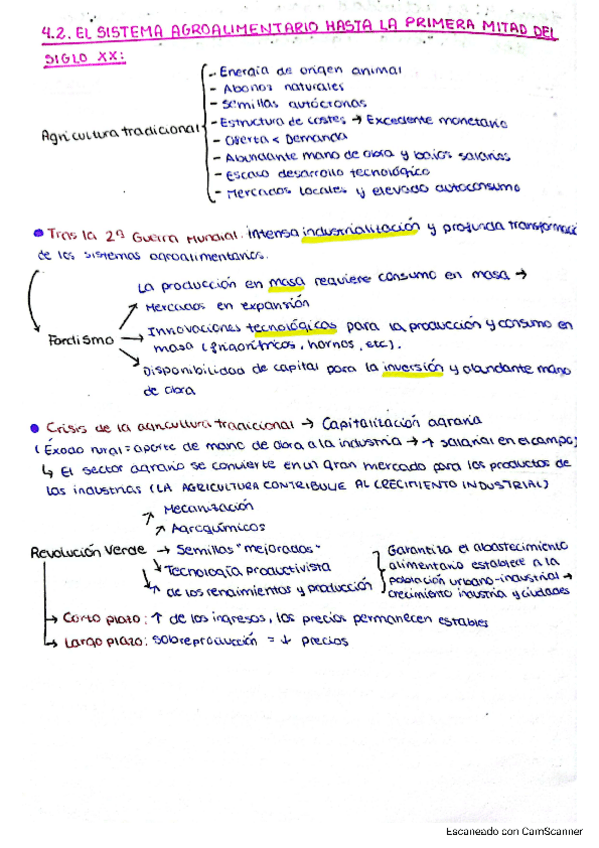 4.2. EL SISTEMA AGROALIMENTARIO HASTA LA PRIMERA MITAD DEL
SIGLO XX:
Agricultura tradicional
- Energía de origen animal
- Abonos naturales
- Semillas autóctonas
- Estructura de costes → Excedente monetario
- Oferta < Demanda
- Abundante mano de obra y bajos salarios
- Escaso desarrollo tecnológico
- Mercados locales y elevado autoconsumo
• Tras la 2ª Guerra Mundial: intensa industrialización y profunda transformaci
de los sistemas agroalimentarios.
Fordismo
La producción en masa requiere consumo en masa →
Mercados en expansión
→ Innovaciones tecnológicas para la producción y consumo en
masa (frigoríficos, hornos, etc).
Disponibilidad de capital para la inversión y abundante mano
de obra
• Crisis de la agricultura tradicional → Capitalización agraria
(Éxodo rural = aporte de mano de obra a la industria → ↑ salarial en el campo)
↳ El sector agrario se convierte en un gran mercado para los productos de
las industrias (LA AGRICULTURA CONTRIBUYE AL CRECIMIENTO INDUSTRIAL)
Revolución Verde
↗ Mecanización
↗ Agroquímicos
→ Semillas "mejoradas"
↘ Tecnología productivista
↑ de los rendimientos y producción
Garantiza el abastecimiento
alimentario estable a la
población urbano-industrial →
crecimiento industria y ciudades
→ Corto plazo: ↑ de los ingresos, los precios permanecen estables
→ Largo plazo: sobreproducción = ↓ precios
Escaneado con CamScanner